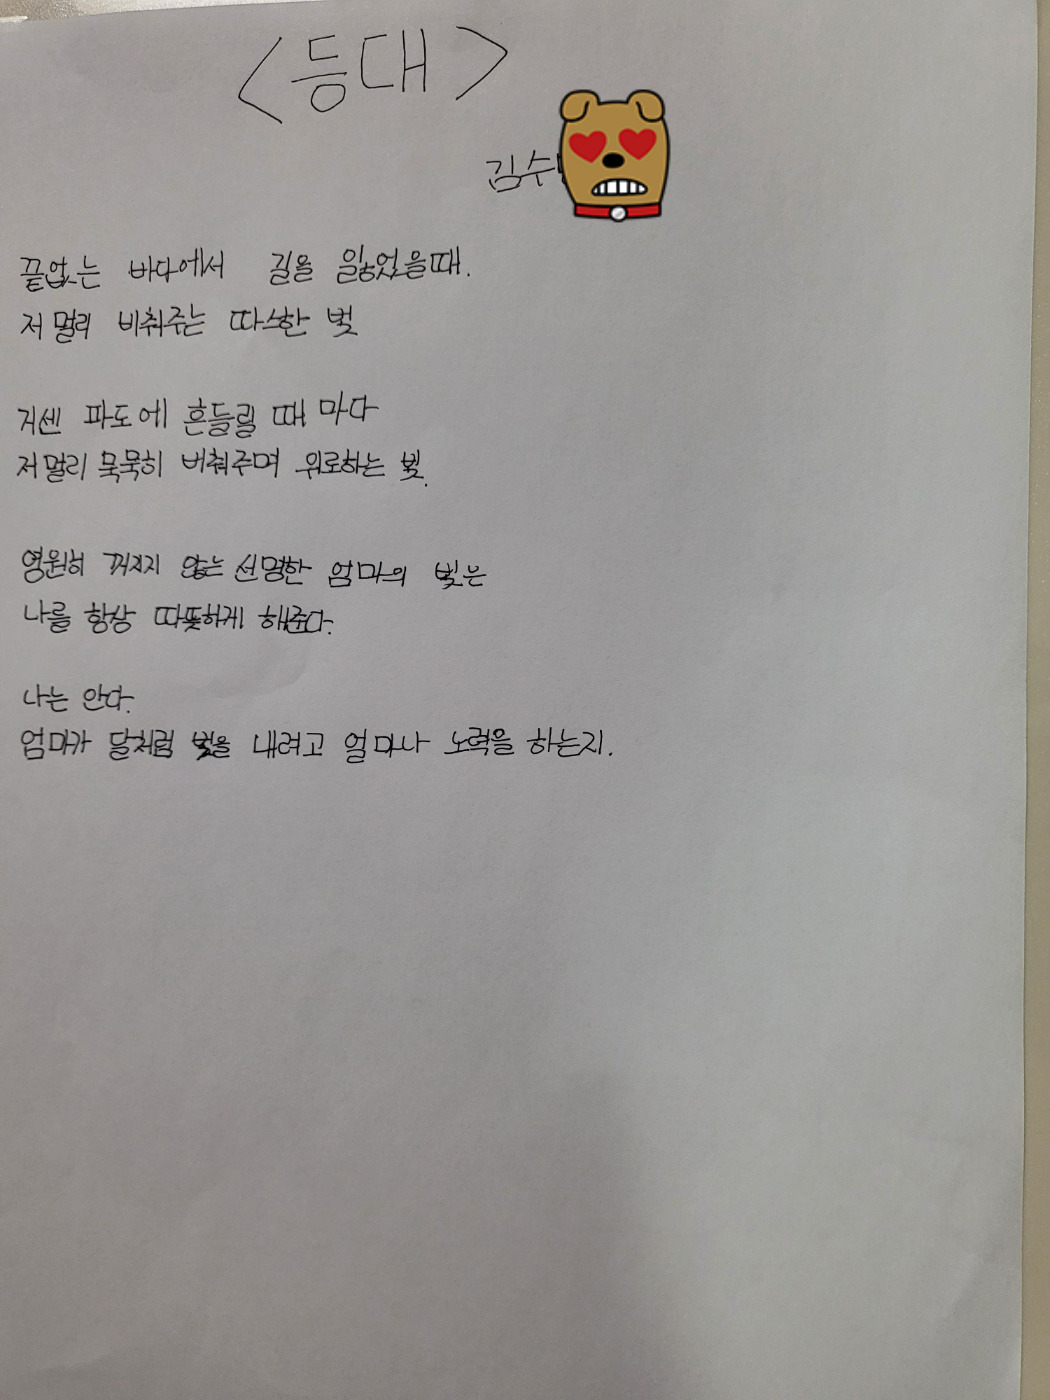 <등대>
김수
끝없는 바다에서 길을 잃었을때.
저 멀리 비춰주는 따스한 빛
거센 파도에 흔들릴 때 마다
저 멀리 묵묵히 비춰주며 위로하는 빛.
영원히 꺼지지 않는 선명한 엄마의 빛은
나를 항상 따뜻하게 해준다.
나는 안다.
엄마가 달처럼 빛을 내려고 얼마나 노력을 하는지.